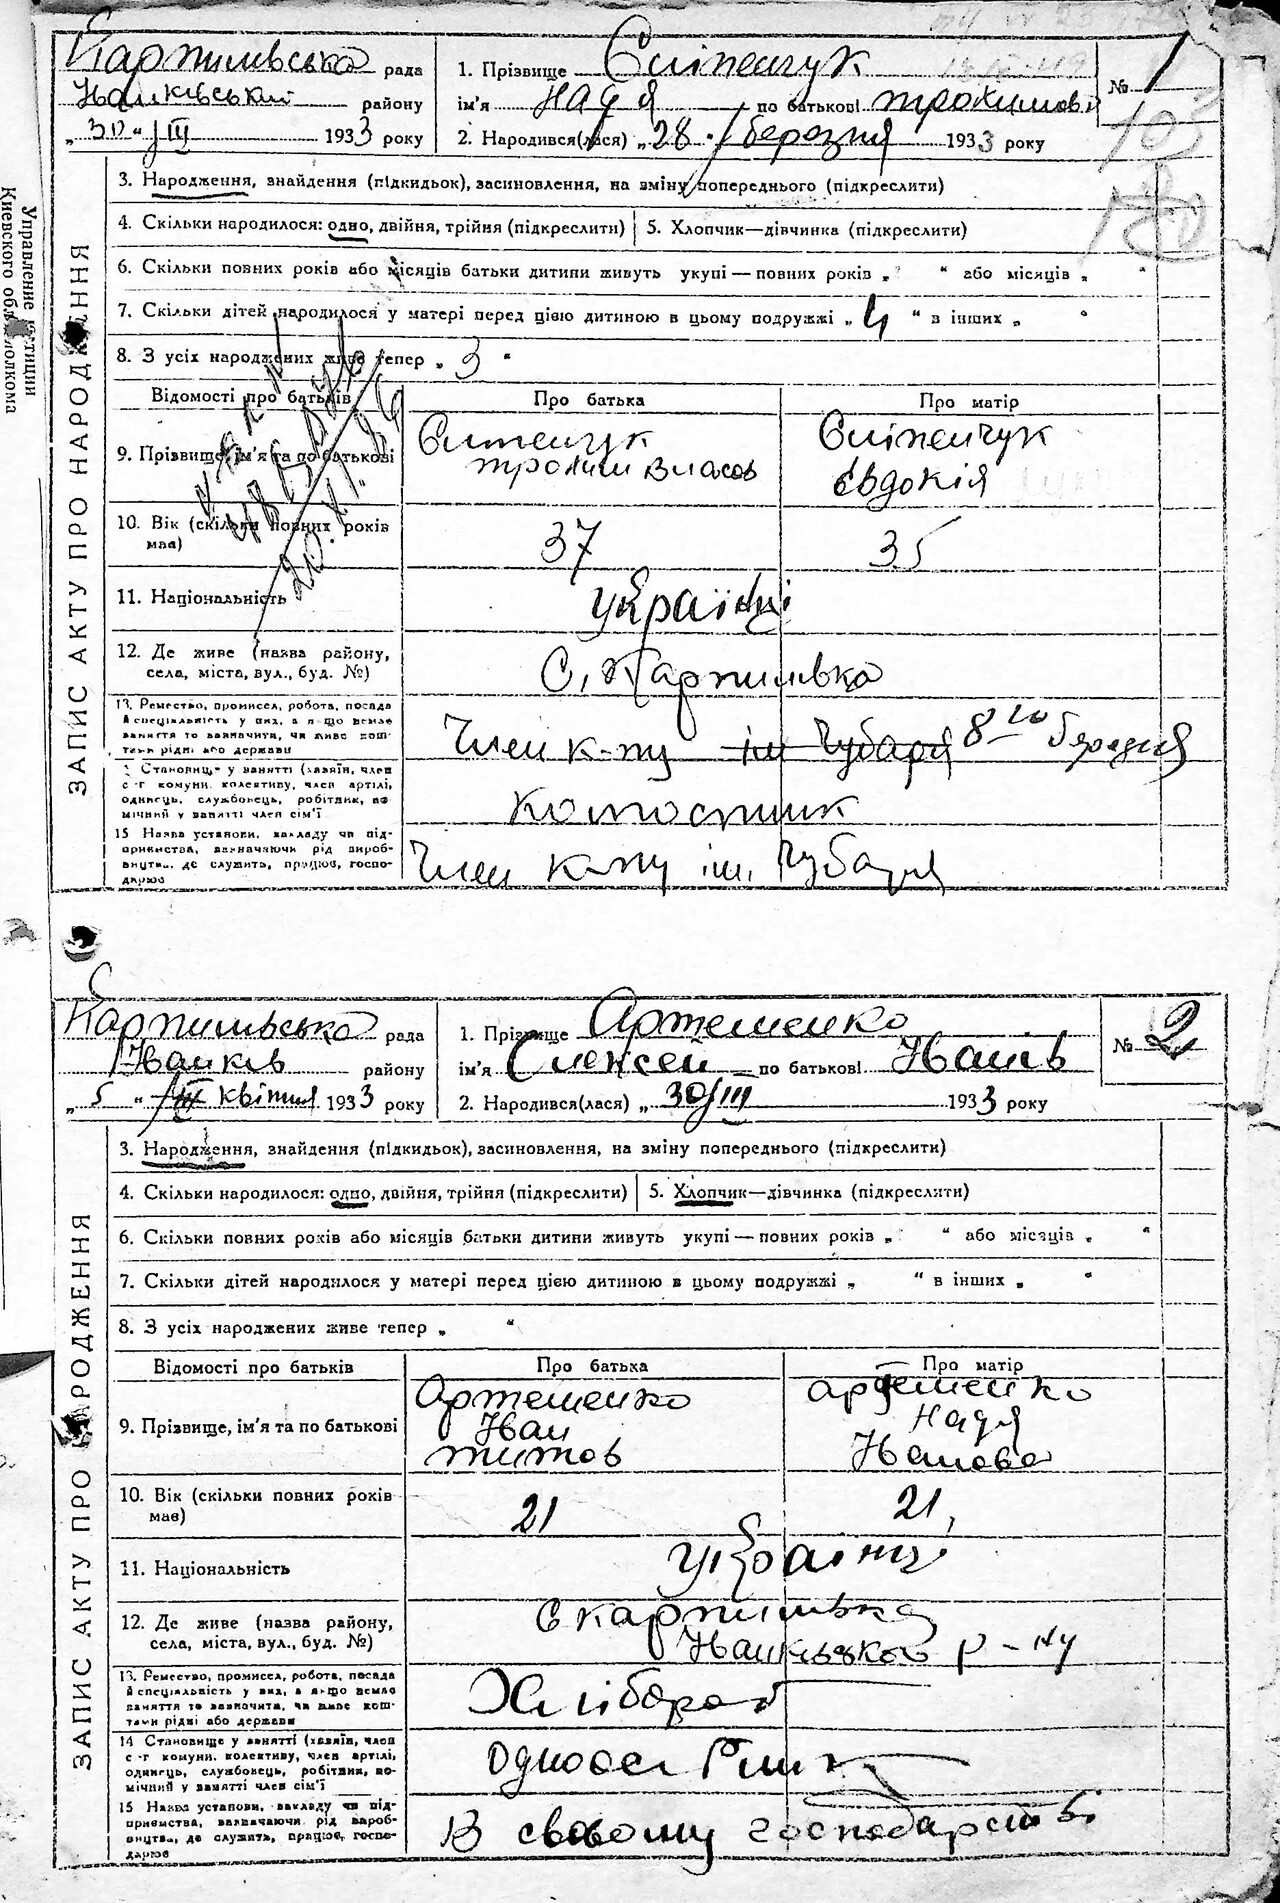 Карпилівська рада
Іванківський району
„ 30 “ / III 1933 року
1. Прізвище Сліпенчук
ім'я Надя по батькові Трохимові
2. Народився(лася) „ 28 “ / березня 1933 року
№ 1
103
Управление юстиции
Киевского облисполкома
ЗАПИС АКТУ ПРО НАРОДЖЕННЯ
3. Народження, знайдення (підкидьок), засиновлення, на зміну попереднього (підкреслити)
4. Скільки народилося: одно, двійня, трійня (підкреслити) 5. Хлопчик—дівчинка (підкреслити)
6. Скільки повних років або місяців батьки дитини живуть укупі — повних років „ “ або місяців „ “
7. Скільки дітей народилося у матері перед цією дитиною в цьому подружжі „ 4 “ в інших „ “
8. З усіх народжених живе тепер „ 3 “
Відомості про батьків Про батька Про матір
9. Прізвище, ім'я та по батькові Сліпенчук Трохим Власов Сліпенчук Євдокія
10. Вік (скільки повних років має) 37 35
11. Національність Українці
12. Де живе (назва району, села, міста, вул., буд. №) С. Карпилівка
13. Ремество, промисел, робота, посада й спеціяльність у них, а якщо немає заняття то зазначити, чи живе коштами рідні або держави
Член к-пу ім Чубаря 8го березня
Становище у занятті (хазяїн, член с-г комуни, колективу, член артілі, одинець, службовець, робітник, помічний у занятті член сім'ї
Колгоспник
15 Назва установи, закладу чи підприємства, зазначаючи рід виробництва, де служить, працює, господарює
Член к-пу ім. Чубаря
Карпилівська рада
Іванків району
„ 5 “ / III квітня 1933 року
1. Прізвище Артеменко
ім'я Олексей по батькові Іванів
2. Народився(лася) „ 30/III 1933 року
№ 2
ЗАПИС АКТУ ПРО НАРОДЖЕННЯ
3. Народження, знайдення (підкидьок), засиновлення, на зміну попереднього (підкреслити)
4. Скільки народилося: одно, двійня, трійня (підкреслити) 5. Хлопчик—дівчинка (підкреслити)
6. Скільки повних років або місяців батьки дитини живуть укупі — повних років „ “ або місяців „ “
7. Скільки дітей народилося у матері перед цією дитиною в цьому подружжі „ “ в інших „ “
8. З усіх народжених живе тепер „ “
Відомості про батьків Про батька Про матір
9. Прізвище, ім'я та по батькові Артеменко Іван Титов Артеменко Надя Іванова
10. Вік (скільки повних років має) 21 21,
11. Національність Українці
12. Де живе (назва району, села, міста, вул., буд. №) С Карпилівка
Іванківського р-ну
13. Ремество, промисел, робота, посада й спеціяльність у них, а якщо немає заняття то зазначити, чи живе коштами рідні або держави
Хлібороб
14 Становище у занятті (хазяїн, член с-г комуни, колективу, член артілі, одинець, службовець, робітник, помічний у занятті член сім'ї
Односельник
15 Назва установи, закладу чи підприємства, зазначаючи рід виробництва, де служить, працює, господарює
В своєму господарстві